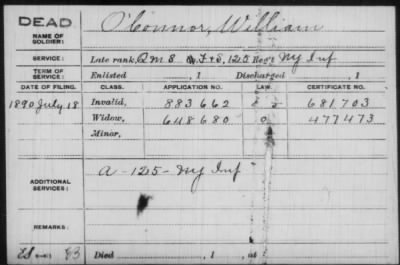 DEAD
NAME OF SOLDIER:
O'Connor, William
SERVICE:
Late rank, Q M S Co. F & S, 125 Reg't Ny Inf
TERM OF SERVICE:
Enlisted , 1 Discharged , 1
DATE OF FILING. CLASS. APPLICATION NO. LAW. CERTIFICATE NO.
1890 July 18 Invalid, 883662 681703
Widow, 648680 477473
Minor,
ADDITIONAL SERVICES:
A - 125 - Ny Inf
REMARKS:
Died , 1 , at